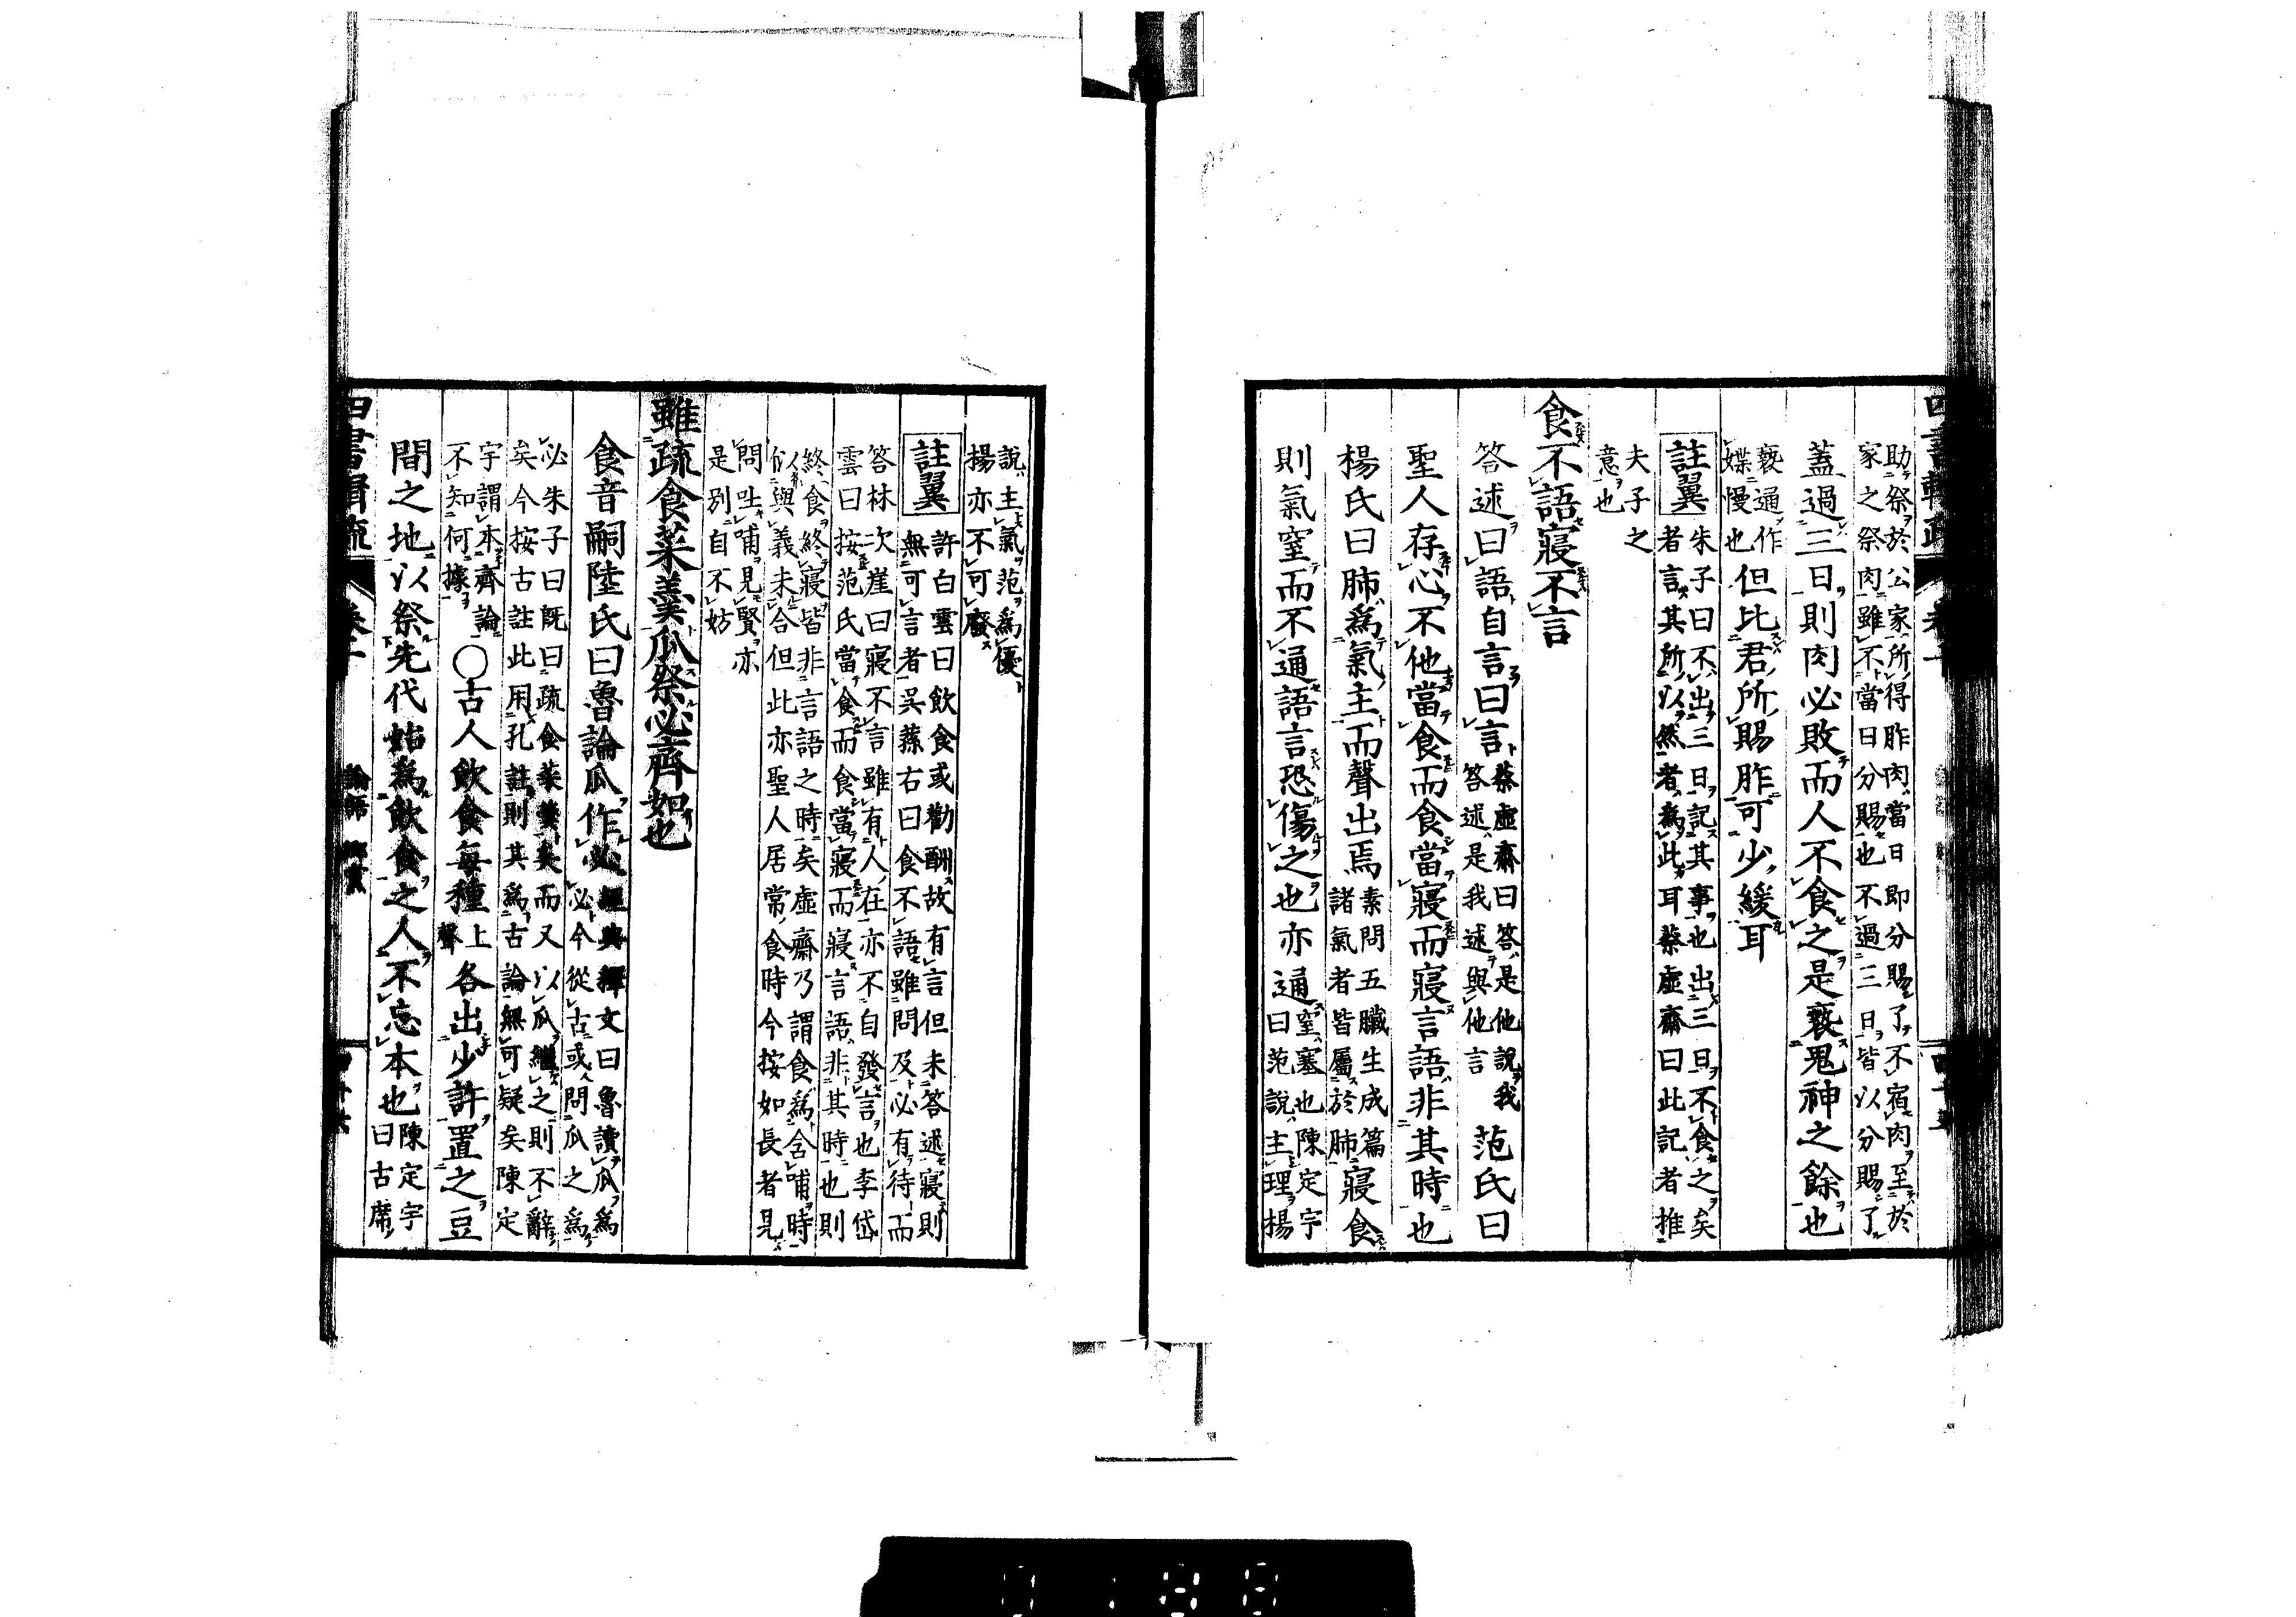 四書輯疏 卷十 四十五
助祭於公家所得胙肉當日即分賜了不宿肉至於
家之祭肉雖不當日分賜也不過三日皆以分賜了
蓋過三日則肉必敗而人不食之是褻鬼神之餘也
褻通作
媟慢也
但比君所賜胙可少緩耳
註翼
朱子曰不出三日記其事也出三日不食之矣
者言其所以然者爲此耳蔡虛齋曰此記者推
夫子之
意也
食不語寢不言
答述曰語自言曰言
蔡虛齋曰答是他說我
答述是我述與他言
范氏曰
聖人存心不他當食而食當寢而寢言語非其時也
楊氏曰肺爲氣主而聲出焉
素問五臟生成篇
諸氣者皆屬於肺
寢食
則氣窒而不通語言恐傷之也亦通
窒塞也陳定宇
曰范說主理楊
說主氣范爲優
楊亦不可廢
註翼
許白雲曰飲食或勸酬故有言但未答述寢則
無可言者吳蓀右曰食不語雖問及必有待而
答林次崖曰寢不言雖有人在亦不自發言也李岱
雲曰按范氏當食而食當寢而寢言語非其時也則
終食終寢皆非言語之時矣虛齋乃謂食爲含哺時
似與義未合但此亦聖人居常食時今按如長者見
問吐哺見賢亦
是別自不妨
雖疏食菜羹瓜祭必齊如也
食音嗣陸氏曰魯論瓜作必
經典釋文曰魯讀瓜爲
必今從古或問瓜之爲
必朱子曰既曰疏食菜羹矣而又以瓜繼之則不辭
矣今按古註此用孔註則其爲古論無可疑矣陳定
宇謂本齊論
不知何據
○古人飲食每種
上
聲
各出少許置之豆
間之地以祭先代始爲飲食之人不忘本也
陳定宇
曰古席
四書輯疏 卷十 論語 鄉黨 四十六